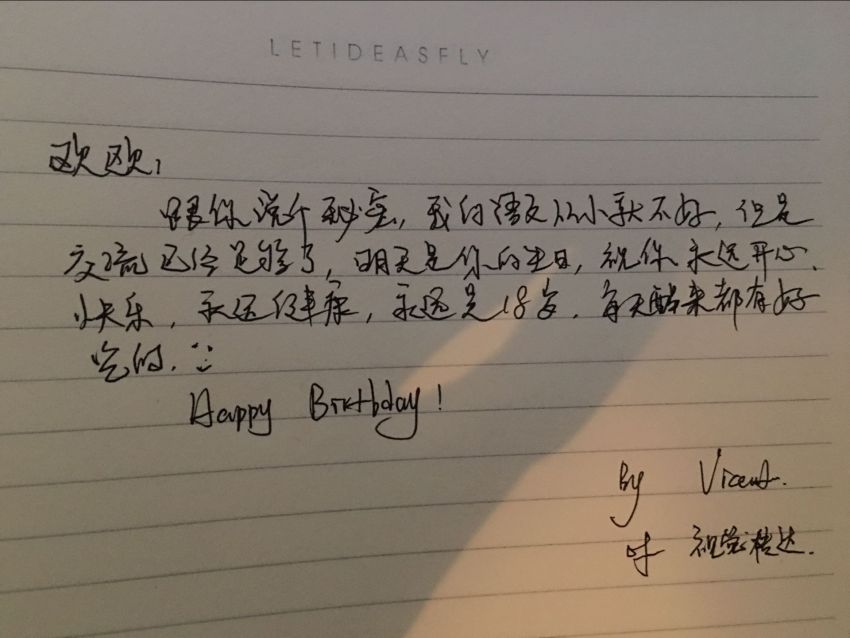 LETIDEASFLY
欧欧，
跟你说个秘密，我的语文从小就不好，但是
交流已经足够了，明天是你的生日，祝你永远开心、
快乐，永远健康，永远是18岁，每天醒来都有好
吃的.
Happy Birthday!
By Vicent.
于 视觉